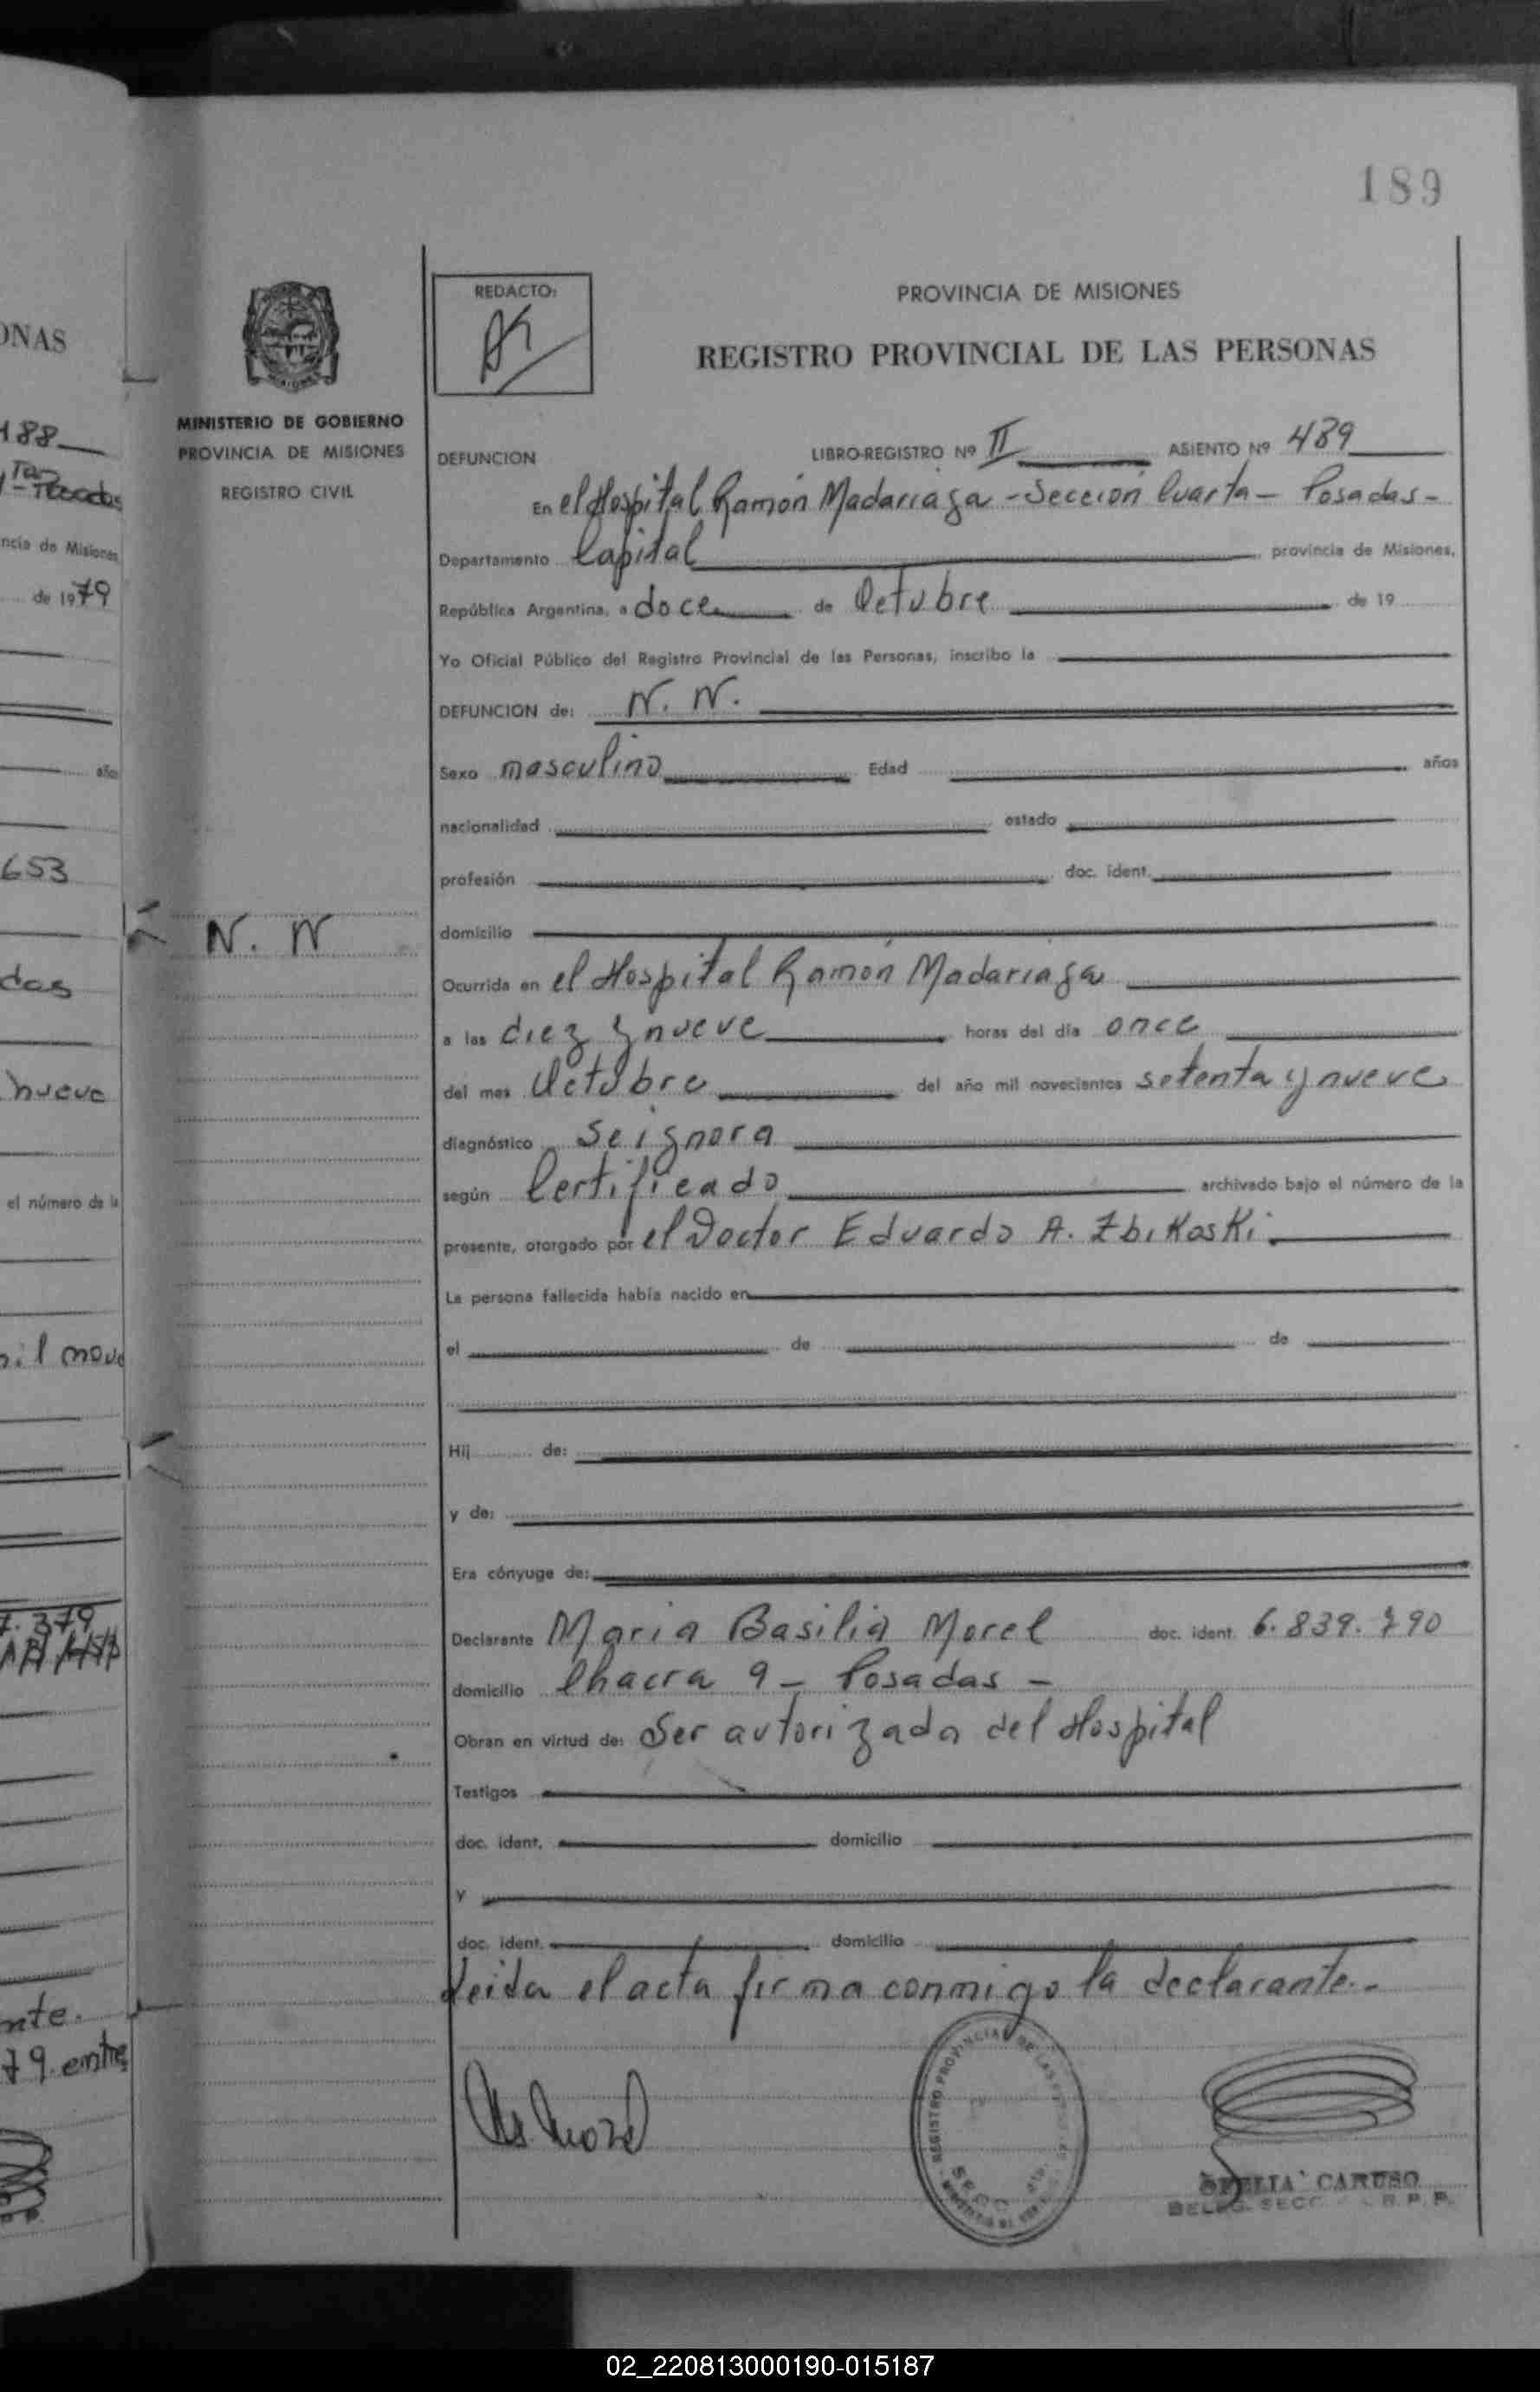 189
ONAS
188
Ta
Posadas
ncia de Misiones
de 1979
años
653
das
nueve
el número de la
mil nove
7.379
nte.
79. entre
MINISTERIO DE GOBIERNO
PROVINCIA DE MISIONES
REGISTRO CIVIL
N. N
REDACTO:
PROVINCIA DE MISIONES
REGISTRO PROVINCIAL DE LAS PERSONAS
DEFUNCION LIBRO-REGISTRO Nº II ASIENTO Nº 489
En el Hospital Ramón Madariaga - Sección Cuarta - Posadas -
Departamento Capital provincia de Misiones,
República Argentina, a doce de Octubre de 19
Yo Oficial Público del Registro Provincial de las Personas, inscribo la
DEFUNCION de: N. N.
Sexo masculino Edad años
nacionalidad estado
profesión doc. ident.
domicilio
Ocurrida en el Hospital Ramón Madariaga
a las diez y nueve horas del día once
del mes Octubre del año mil novecientos setenta y nueve
diagnóstico se ignora
según Certificado archivado bajo el número de la
presente, otorgado por el Doctor Eduardo A. Zbikoski.
La persona fallecida había nacido en
el de de
Hij de:
y de:
Era cónyuge de:
Declarante Maria Basilia Morel doc. ident. 6.839.790
domicilio Chacra 9 - Posadas -
Obran en virtud de: Ser autorizada del Hospital
Testigos
doc. ident. domicilio
y
doc. ident. domicilio
Leida el acta firma conmigo la declarante.-
REGISTRO PROVINCIAL DE LAS
OFELIA CARUSO
DELEG. SECC R. P. P.
02_220813000190-015187